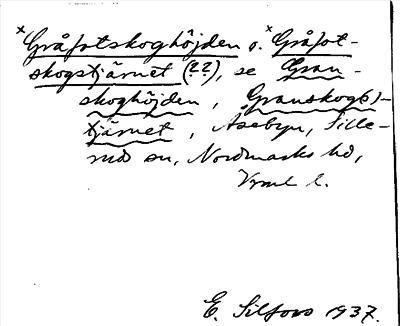 ×Gråfotskoghöjden o. ×Gråfot-
skogstjärnet (??), se Gran-
skoghöjden, Granskog(s)-
tjärnet, Åsebyn, Sille-
ruds sn, Nordmarks hd,
Vrml l.
E. Silfors 1937.